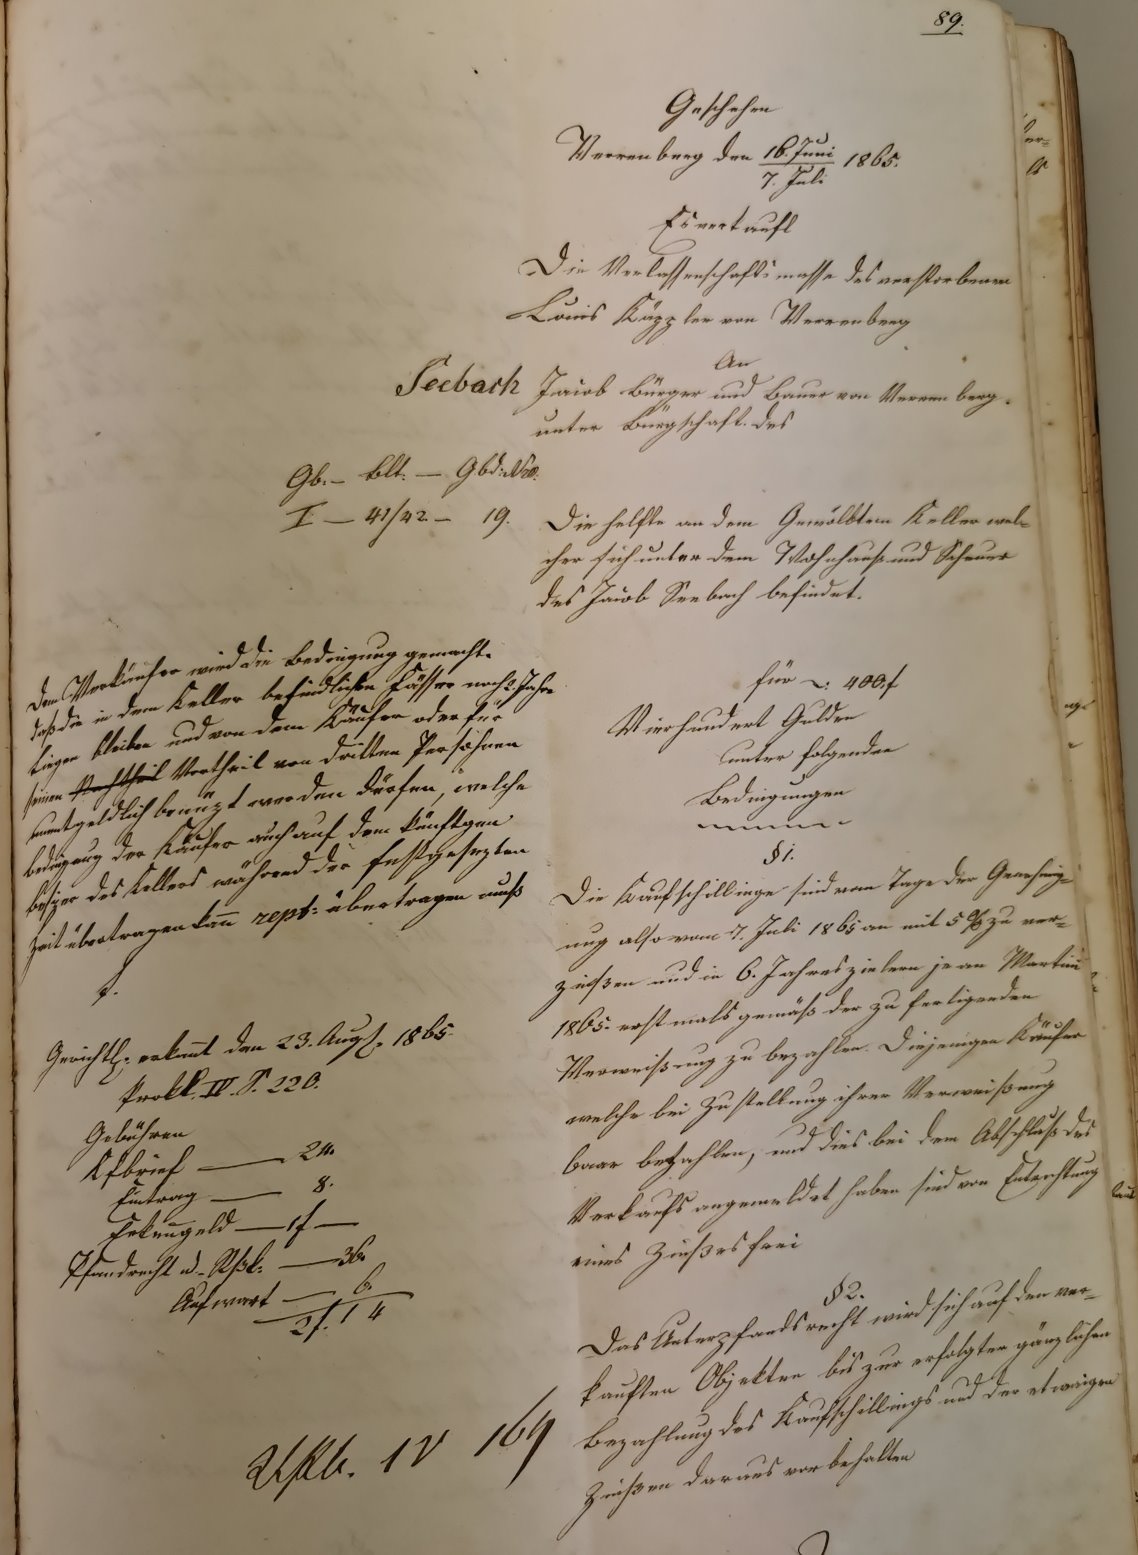 89.
Geschehen
Verrenberg den 16. Juni / 7. Juli 1865.
Es verkauft
Die Verlassenschaftsmasse des verstorbenen
Louis Käppler von Verrenberg
An
Seebach Jacob Bürger und Bauer von Verrenberg.
unter Bürgschaft des
Gb. – Blt. – Gbd: No.
I – 41/42 – 19.
Die helfte an dem Gewölbten Keller wel-
cher sich unter dem Wohnhauß und Scheuer
des Jacob Seebach befindet.
für 400.f
Vierhundert Gulden
unter folgenden
Bedingungen
§ 1.
Die Kaufschillinge sind vom Tage der Genehmig-
ung also vom 7. Juli 1865 an mit 5 % zu ver-
zinßen und in 6. Jahreszielern je an Martini
1865. erstmals gemäß der zu fertigenden
Verweißung zu bezahlen. Diejenigen Käufer
welche bei Zustellung ihrer Verweißung
baar bezahlen, und dies bei dem Abschluß des
Verkaufs angemeldet haben sind von Entrichtung
eines Zinßes frei
§ 2.
Das Unterpfandsrecht wird sich auf den ver-
kauften Objekten bis zur erfolgten gänzlichen
Bezahlung des Kaufschillings und der etwaigen
Zinßen daraus vorbehalten
Dem Verkäufer wird die Bedingung gemacht.
daß die in dem Keller befindlichen Fässer noch 2. Jahre
liegen bleiben und von dem Käufer oder für
seinen Nachtheil Vortheil von dritten Persohnen
unentgeldlich benüzt werden dürfen, welche
Bedingung der Käufer auch auf dem künftgen
Besizer des Kellers während der festgesezten
Zeit übertragen kann rept: übertragen muß
Gerichtl: erkannt den 23. Augst. 1865.
Prokl. IV. S. 220.
Gebühren
Kfbrief — 24.
Eintrag — 8.
Erkenngeld — 1f —
Pfandrecht — 36.
Aufwart — 6.
2f. 14
IV 169